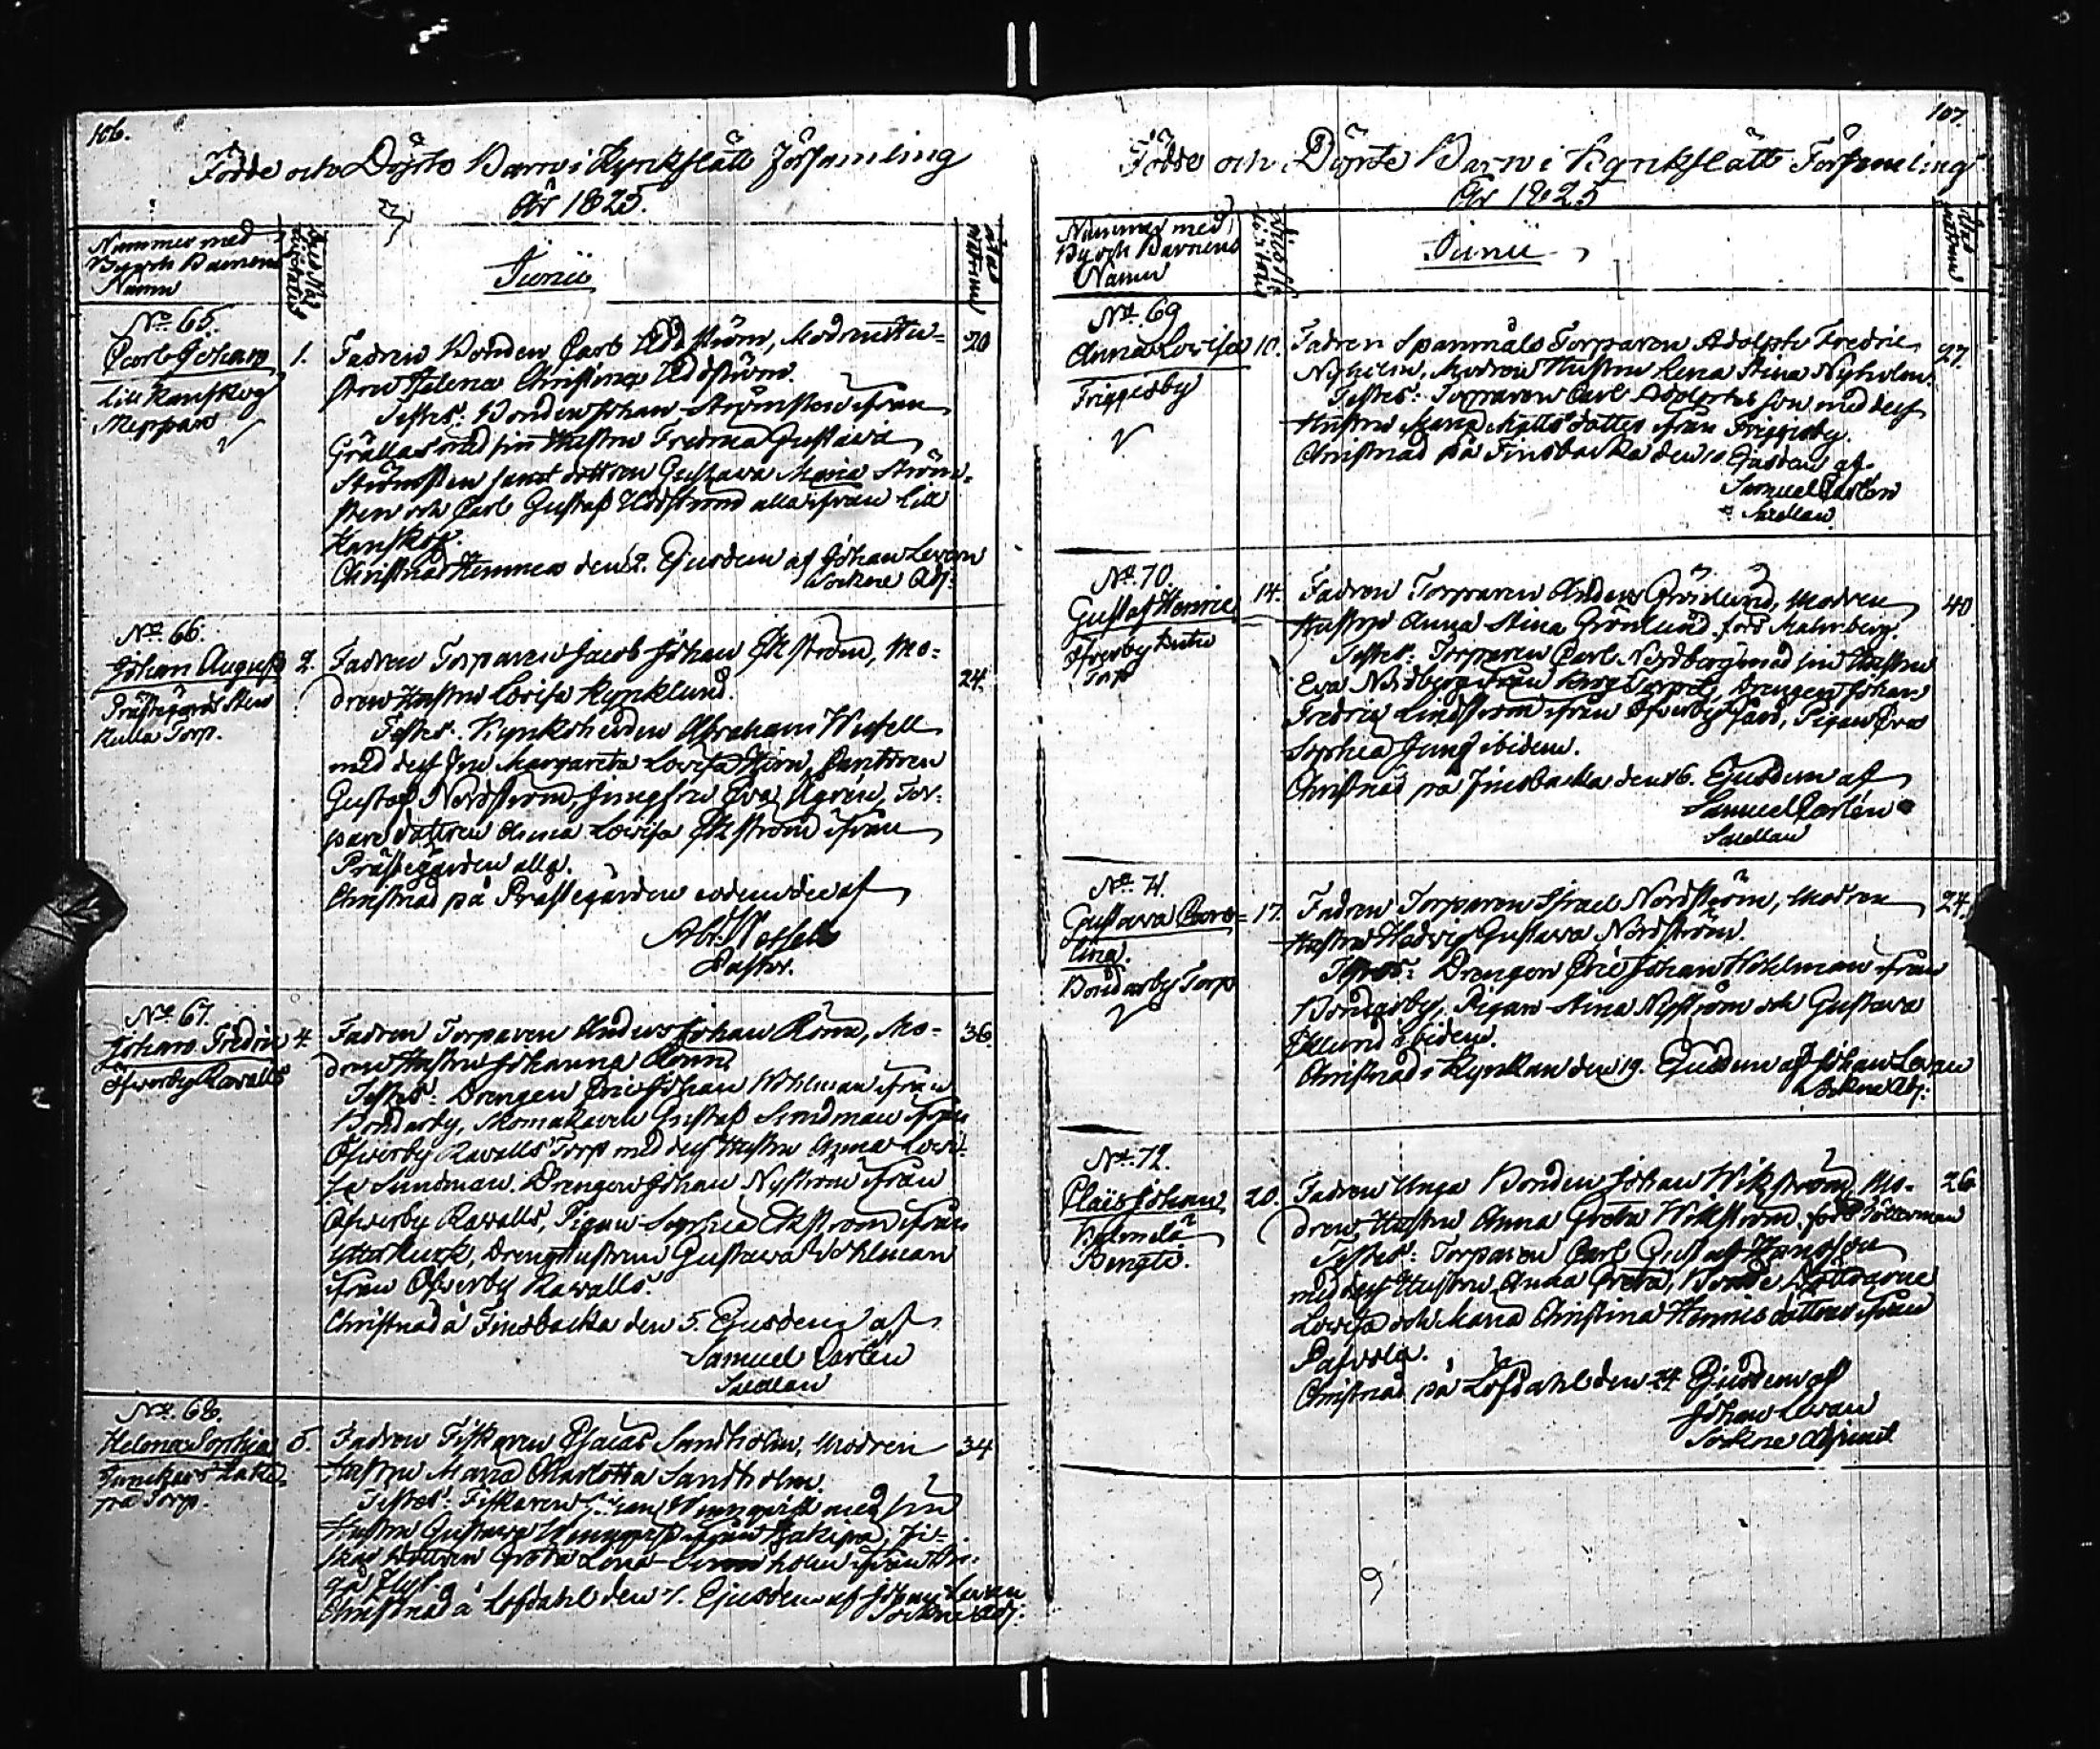 106.
Födde och Döpte Barn i Kyrkslätt Församling
År 1825.
Nummer med
By och Barnens
Namn
Junii
No. 65.
Carl Johan
Lill Kanskog
Meppars
1.
Fadren Bonden Carl Uddström, Modren Hu=
strun Helena Christina Uddström.
Testes: Bonden Johan Strömsten ifrån
Grällas med sin Hustru Fredrica Gustava
Strömsten samt dottren Gustava Maria Ström=
sten och Carl Gustaf Uddström alla ifrån Lill
Kanskog.
Christnad Hemma den 2. Ejusdem af Johan Levan
Sockne Adj:
20
No. 66.
Johan August
Prästegårds Sten
Kulla Torp.
2.
Fadren Torparen Jacob Johan Ekström, Mo=
dren Hustru Lovisa Kyrklund.
Testes: Kyrkoherden Abraham Wessell
med dess Fru Margareta Lovisa Hirn, Cantoren
Gustaf Nordström, Jungfru Eva Ågren, Tor=
pare dottren Anna Lovisa Ekström ifrån
Prästegården alla.
Christnad på Prästegården eodem die af
Abr. Wessell
Pastor.
24.
No. 67.
Johan Fredric
Öfverby Ravalls
4.
Fadren Torparen Anders Johan Rönn, Mo=
dren Hustru Johanna Rönn
Testes: Drengen Eric Johan Wohlman ifrån
Bondarby, Skomakaren Gustaf Sundman ifrån
Öfverby Ravalls Torp med dess Hustru Anna Lovi=
sa Sundman. Drengen Johan Nyström ifrån
Öfverby Ravalls, Pigan Sophia Ekström ifrån
Ytterkurk, Dreng Hustrun Gustava Wohlman
ifrån Öfverby Ravalls.
Christnad å Finsbacka den 5. Ejusdem af
Samuel Carlén
Sacellan
36.
No. 68.
Helena Sophia
på Torp.
5.
Fadren Fiskaren Esaias Sandholm, Modren
Hustru Maria Charlotta Sandholm.
Testes: Fiskaren Johan Wennqvist med sin
Hustru Gustava Wennqvist ifrån Fi=
skar dottren Greta Lena holm ifrån
Christnad å Löfdahl den 7. Ejusdem af Johan Levan
Sockne Adj:
34
107.
Födde och Döpte Barn i Kyrkslätt Församling
År 1825
Nummer med
By och Barnens
Namn
Junii
No. 69
Anna Lovisa
Friggesby
10.
Fadren Spanmåls Torparen Adolph Fredric
Nyholm, Modren Hustru Lena Stina Nyholm.
Testes: Torparen Carl Adolphsson med dess
Hustru Maria Matts dotter ifrån Friggesby.
Christnad på Finsbacka den 10 Ejusdem af
Samuel Carlén
Sacellan
27.
No. 70.
Gustaf Henric
Öfverby
Torp
14.
Fadren Torparen Anders Grönlund, Modren
Hustru Anna Stina Grönlund född Malmberg.
Testes: Torparen Carl Nordberg med sin Hustru
Eva Nordberg ifrån Drengen Johan
Fredric Lindström ifrån Öfverby Gård, Pigan Eva
Sophia Jung ibidem.
Christnad på Finsbacka den 16. Ejusdem af
Samuel Carlén
Sacellan
40
No. 71.
Gustava Caro=
lina.
Bondarby Torp
17.
Fadren Torparen Israel Nordström, Modren
Hustru Hedvig Gustava Nordström.
Testes: Drengen Eric Johan Wohlman ifrån
Bondarby, Pigan Stina Nyström och Gustava
Eklund ibidem.
Christnad i Kyrkan den 19. Ejusdem af Johan Levan
Sockne Adj:
24.
No. 72.
Claës Johan
Bengts.
20.
Fadren Unga Bonden Johan Wikström, Mo=
dren Hustru Anna Greta Wikström född
Testes: Torparen Carl Gustaf Hansson
med dess Hustru Anna Greta, Bonde Döttrarne
Lovisa och Maria Christina Hinrics döttrar ifrån
Christnad på Löfdahl den 24 Ejusdem af
Johan Levan
Sockne Adjunct
26